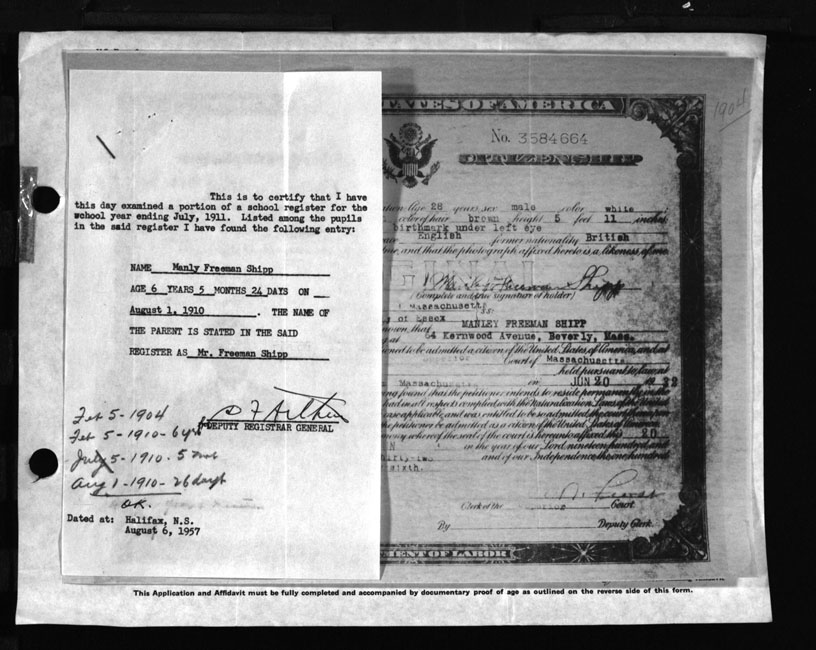 This is to certify that I have
this day examined a portion of a school register for the
wchool year ending July, 1911. Listed among the pupils
in the said register I have found the following entry:
NAME Manly Freeman Shipp
AGE 6 YEARS 5 MONTHS 24 DAYS ON
August 1, 1910 . THE NAME OF
THE PARENT IS STATED IN THE SAID
REGISTER AS Mr. Freeman Shipp
DEPUTY REGISTRAR GENERAL
Feb 5-1904
Feb 5-1910-6 yrs
July 5-1910. 5 mos
Aug 1-1910-26 days
OK.
Dated at: Halifax, N.S.
August 6, 1957
1904
STATES OF AMERICA
No. 3584664
CITIZENSHIP
Age 28 years, sex male color white
color of hair brown height 5 feet 11 inches
birthmark under left eye
English former nationality British
and that the photograph affixed hereto is a likeness of me
Manley Freeman Shipp
Complete and true signature of holder
Massachusetts
ss:
of Essex
that MANLEY FREEMAN SHIPP
at 64 Kernwood Avenue, Beverly, Mass.
to be admitted a citizen of the United States of America, and at
Court of Massachusetts
held pursuant to law at
Massachusetts on JUN 20 19 32
found that the petitioner intends to reside permanently
in all respects complied with the Naturalization Laws of the
case applicable, and was entitled to be so admitted, the court
the petitioner be admitted as a citizen of the United States of
whereof the seal of the court is hereunto affixed this 20
in the year of our Lord nineteen hundred and
thirty-two and of our Independence the one hundred
sixth.
Clerk of the Court
By Deputy Clerk.
DEPARTMENT OF LABOR
This Application and Affidavit must be fully completed and accompanied by documentary proof of age as outlined on the reverse side of this form.